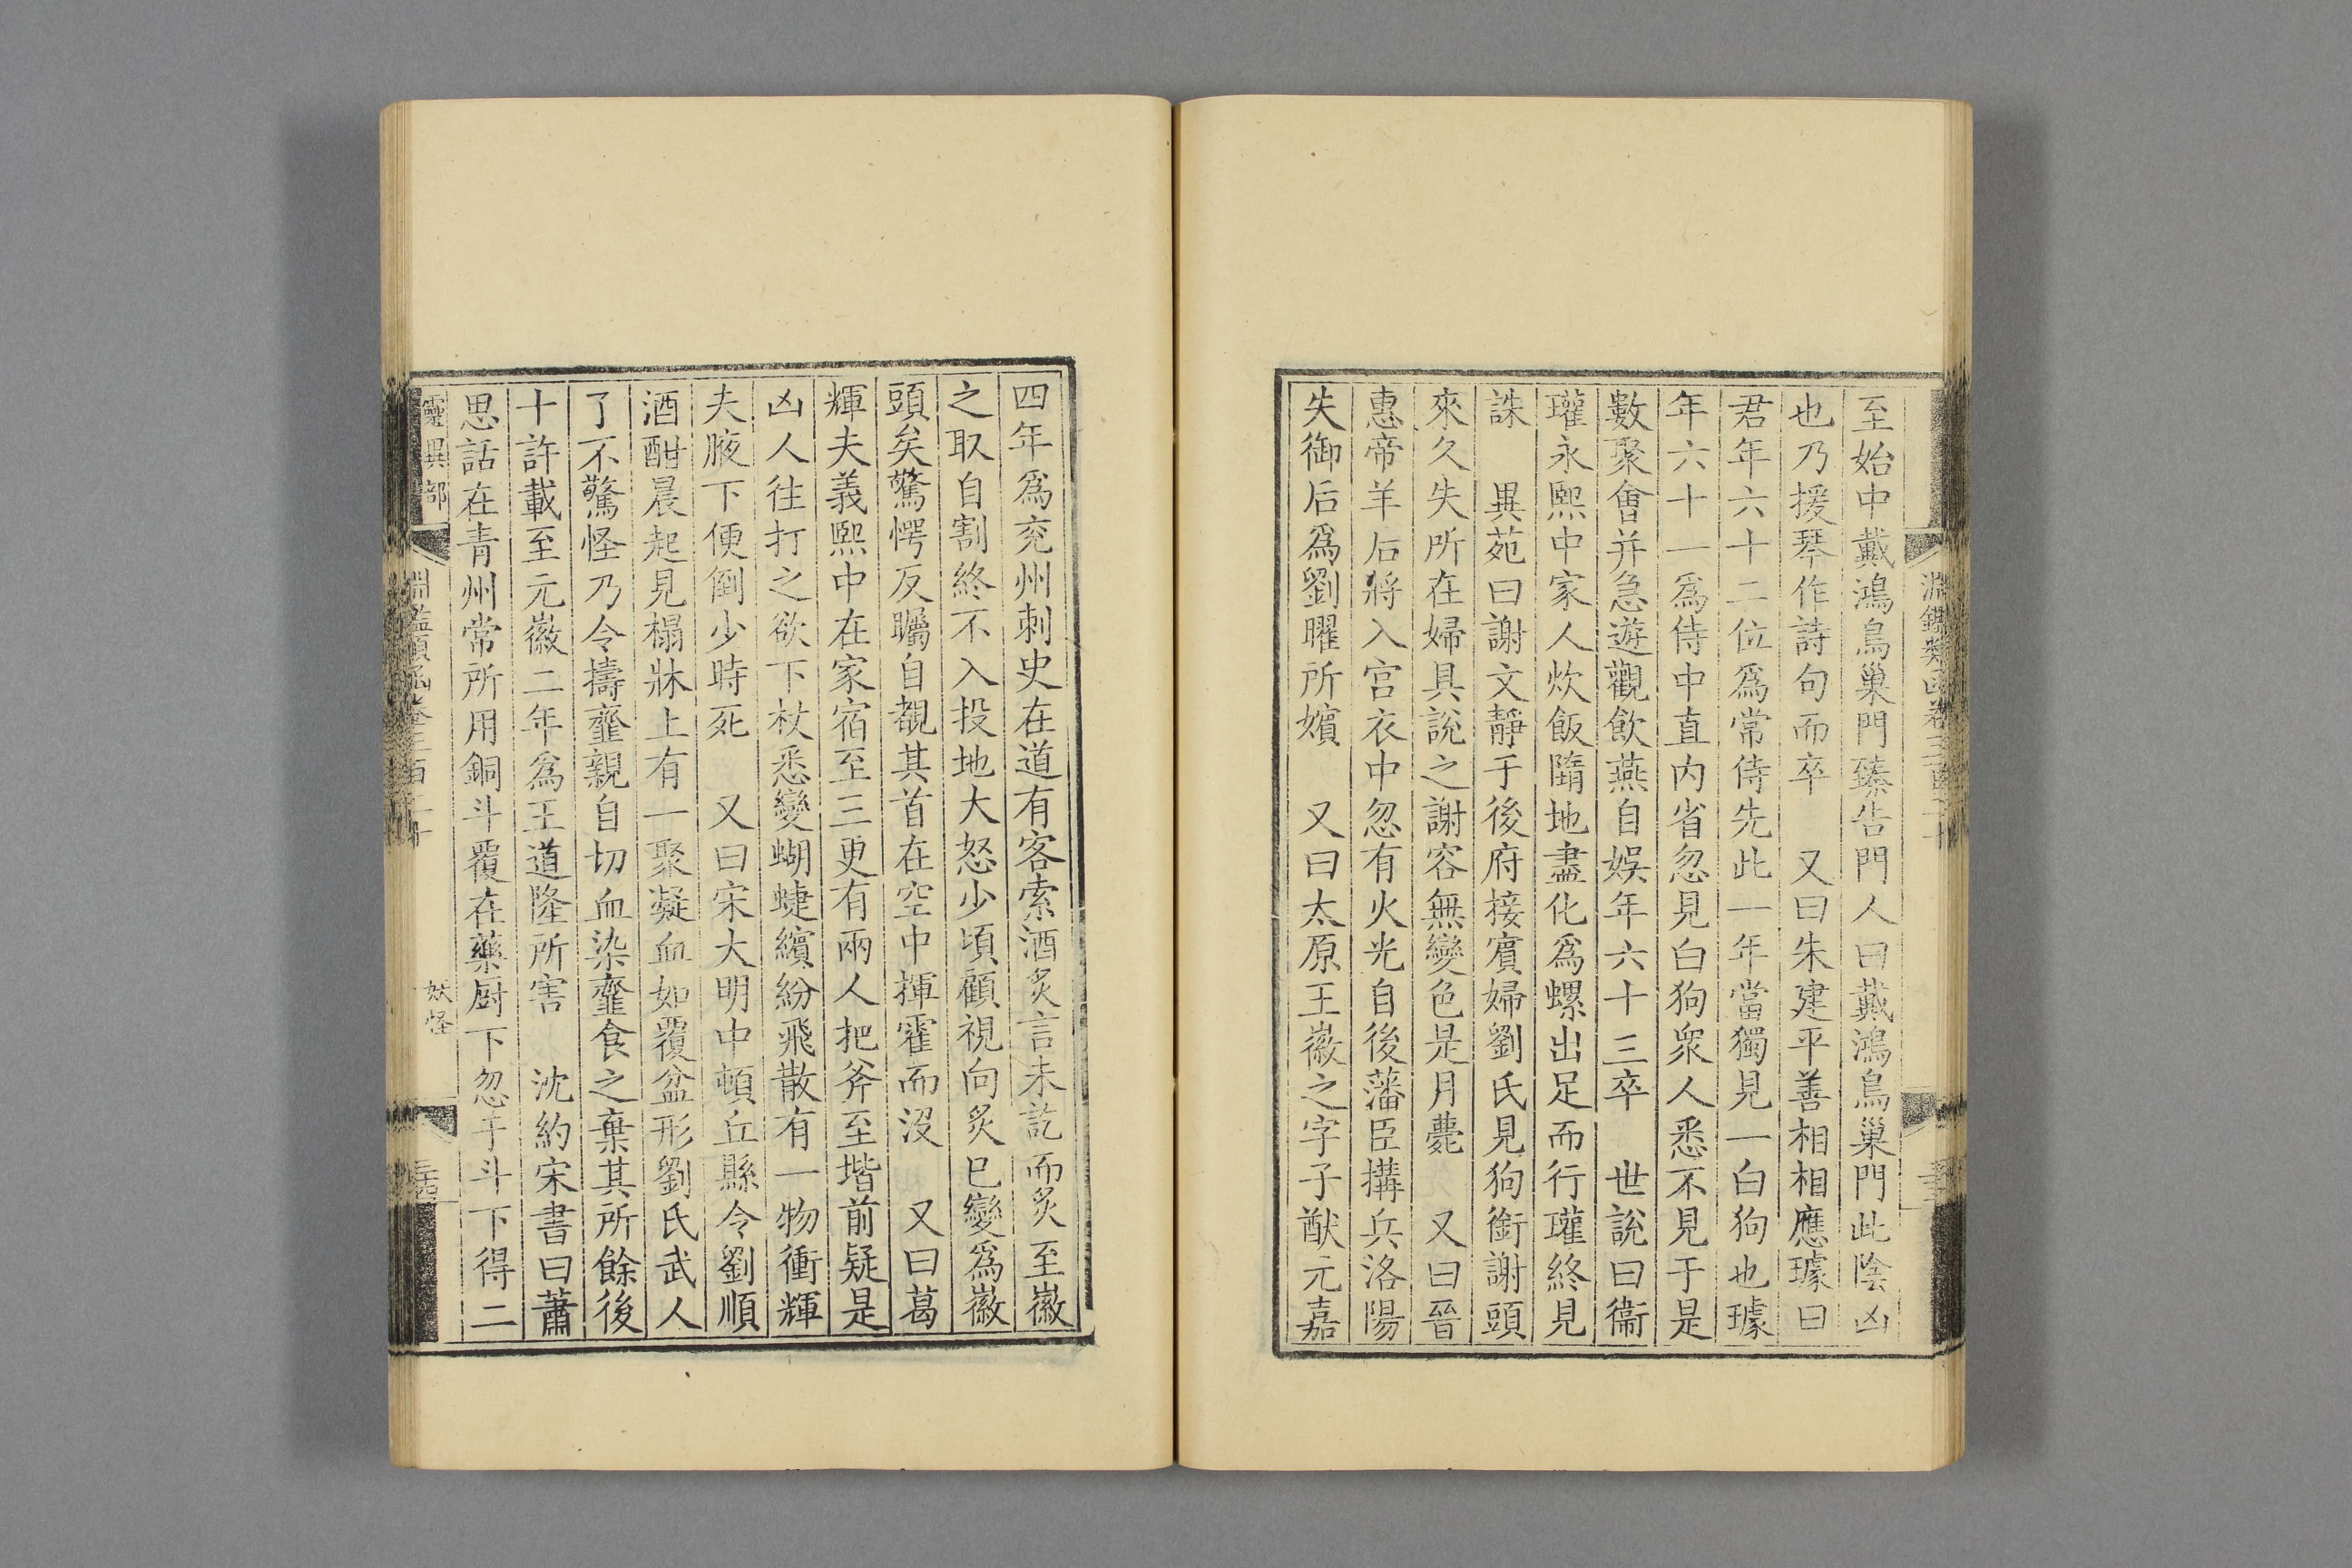 至始中戴鴻鳥巢門臻告門人曰戴鴻鳥巢門此陰凶
也乃援琴作詩句而卒　又曰朱建平善相相應璩曰
君年六十二位爲常侍先此一年當獨見一白狗也璩
年六十一爲侍中直内省忽見白狗衆人悉不見于是
數聚會并急遊觀飲燕自娛年六十三卒　世說曰衞
瓘永熙中家人炊飯隋地盡化爲螺出足而行瓘終見
誅　異苑曰謝文靜于後府接賓婦劉氏見狗銜謝頭
來久失所在婦具說之謝容無變色是月薨　又曰晉
惠帝羊后將入宫衣中忽有火光自後藩臣搆兵洛陽
失御后爲劉曜所嬪　又曰太原王徽之字子猷元嘉
四年爲兖州刺史在道有客索酒炙言未訖而炙至徽
之取自割終不入投地大怒少頃顧視向炙已變爲徽
頭矣驚愕反矚自覩其首在空中揮霍而没　又曰葛
輝夫義熙中在家宿至三更有兩人把斧至堦前疑是
凶人往打之欲下杖悉變蝴蜨繽紛飛散有一物衝輝
夫腋下便倒少時死　又曰宋大明中頓丘縣令劉順
酒酣晨起見榻牀上有一聚凝血如覆盆形劉氏武人
了不驚怪乃令擣虀親自切血染虀食之棄其所餘後
十許載至元徽二年爲王道隆所害　沈約宋書曰蕭
思話在青州常所用銅斗覆在藥厨下忽于斗下得二
靈異部　淵鑑類函卷三百二十　妖怪